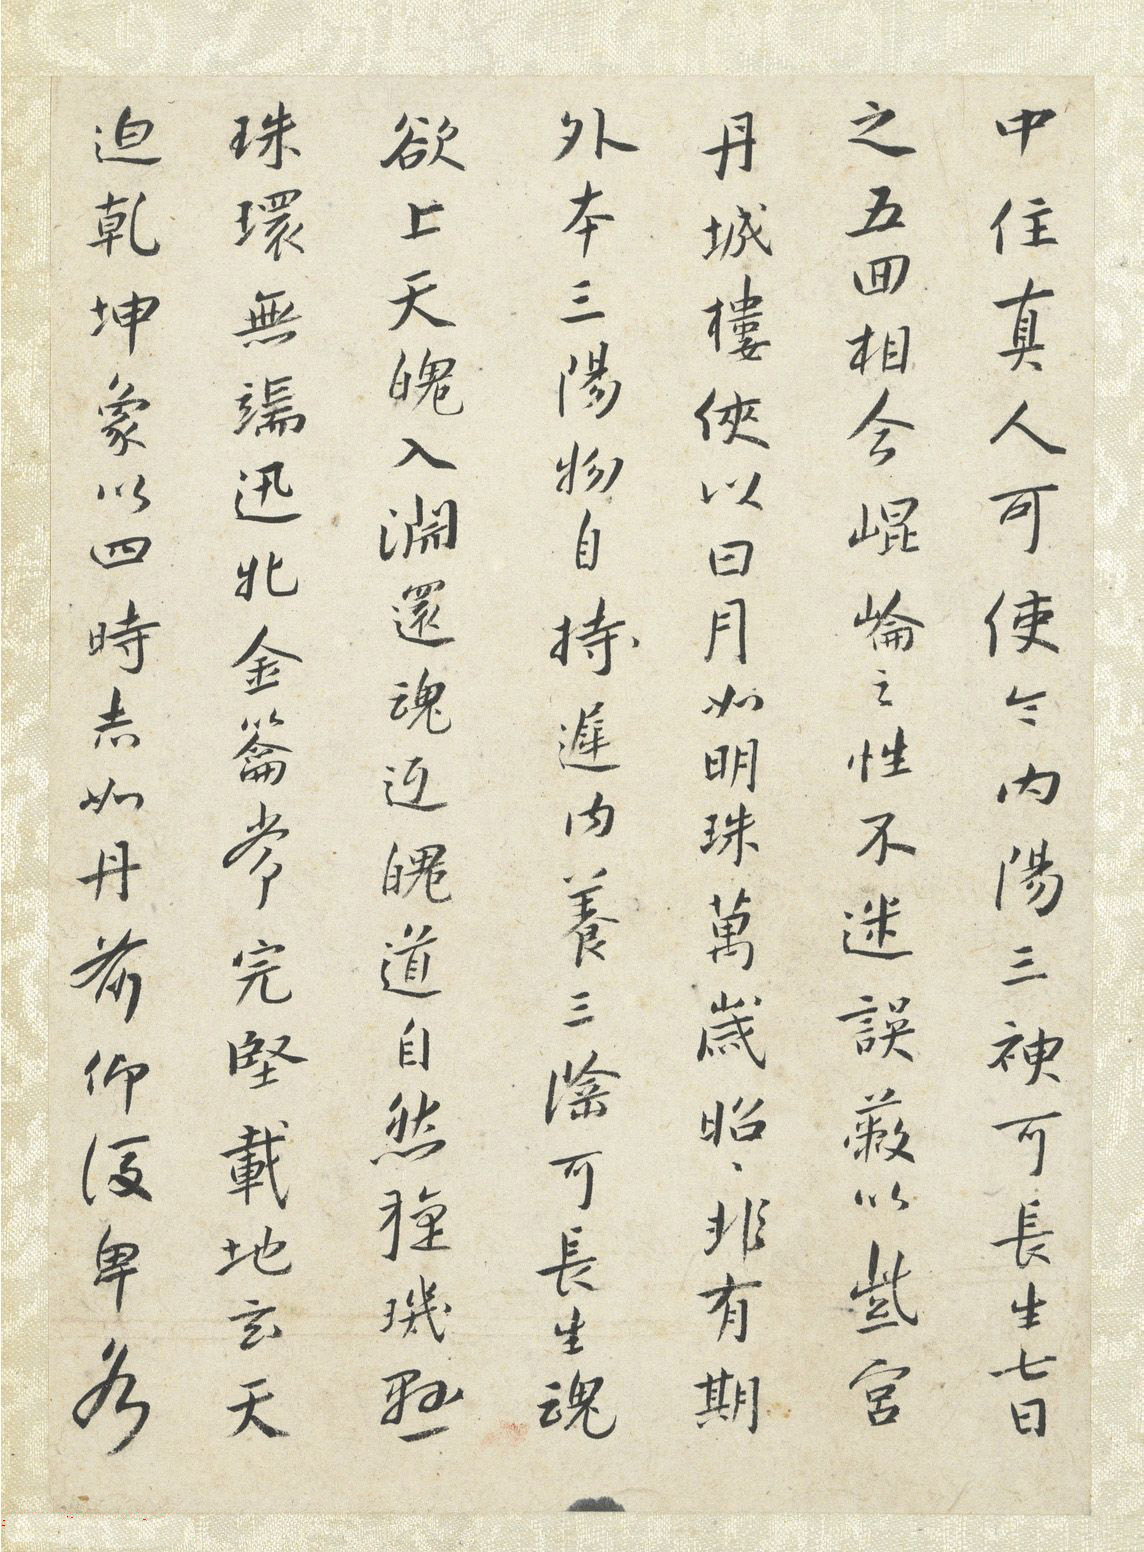 中住真人可使令内陽三神可長生七日
之五回相合崐崘之性不迷誤蔽以紫宮
丹城樓俠以日月如明珠萬歲昭、非有期
外本三陽物自持遲内養三陰可長生魂
欲上天魄入淵還魂返魄道自然璇璣懸
珠環無端迅北金籥常完堅載地玄天
迫乾坤象以四時赤如丹前仰後卑各